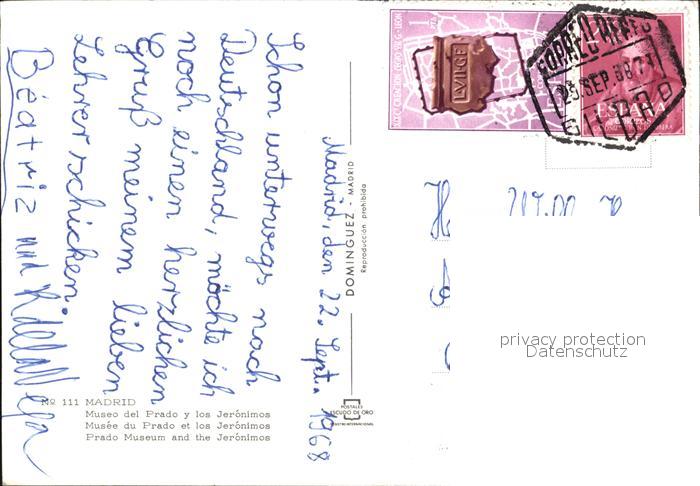 Madrid, den 22. Sept. 1968
Schon unterwegs nach
Deutschland, möchte ich
noch einen herzlichen
Gruß meinem lieben
Lehrer schicken.
Béatriz und
Nº 111 MADRID
Museo del Prado y los Jerónimos
Musée du Prado et los Jerónimos
Prado Museum and the Jerónimos
DOMINGUEZ - MADRID
Reproducción prohibida
POSTALES
ESCUDO DE ORO
LEGIO VII G - LEON
1 PTA
LVIIGE
CORREO AEREO
25.SEP.68
ESPAÑA
H
privacy protection
Datenschutz